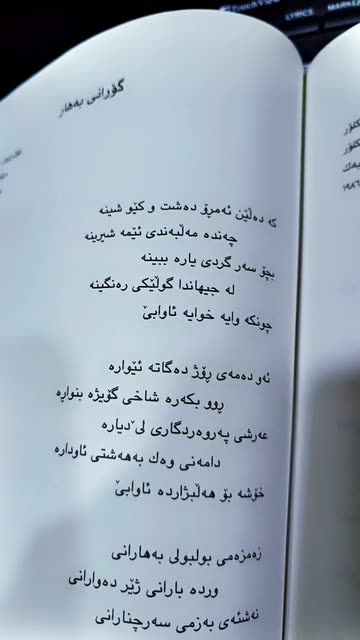 LYRICS
گۆرانی بەهار
کە دەڵێن ئەمڕۆ دەشت و کێو شینە
چەندە مەڵبەندی ئێمە شیرینە
بچۆ سەر گردی یارە ببینە
لە جیهاندا گوڵێکی رەنگینە
چونکە وایە خوایە ئاوابێ
ئەو دەمەی ڕۆژ دەگاتە ئێوارە
ڕوو بکەرە شاخی گۆیژە بنواڕە
عەرشی پەروەردگاری لێ دیارە
دامەنی وەك بەهەشتی ئاودارە
خۆشە بۆ هەڵبژاردە ئاوابێ
زەمزەمی بولبولی بەهارانی
وردە بارانی ژێر دەوارانی
نەشئەی بەزمی سەرچنارانی